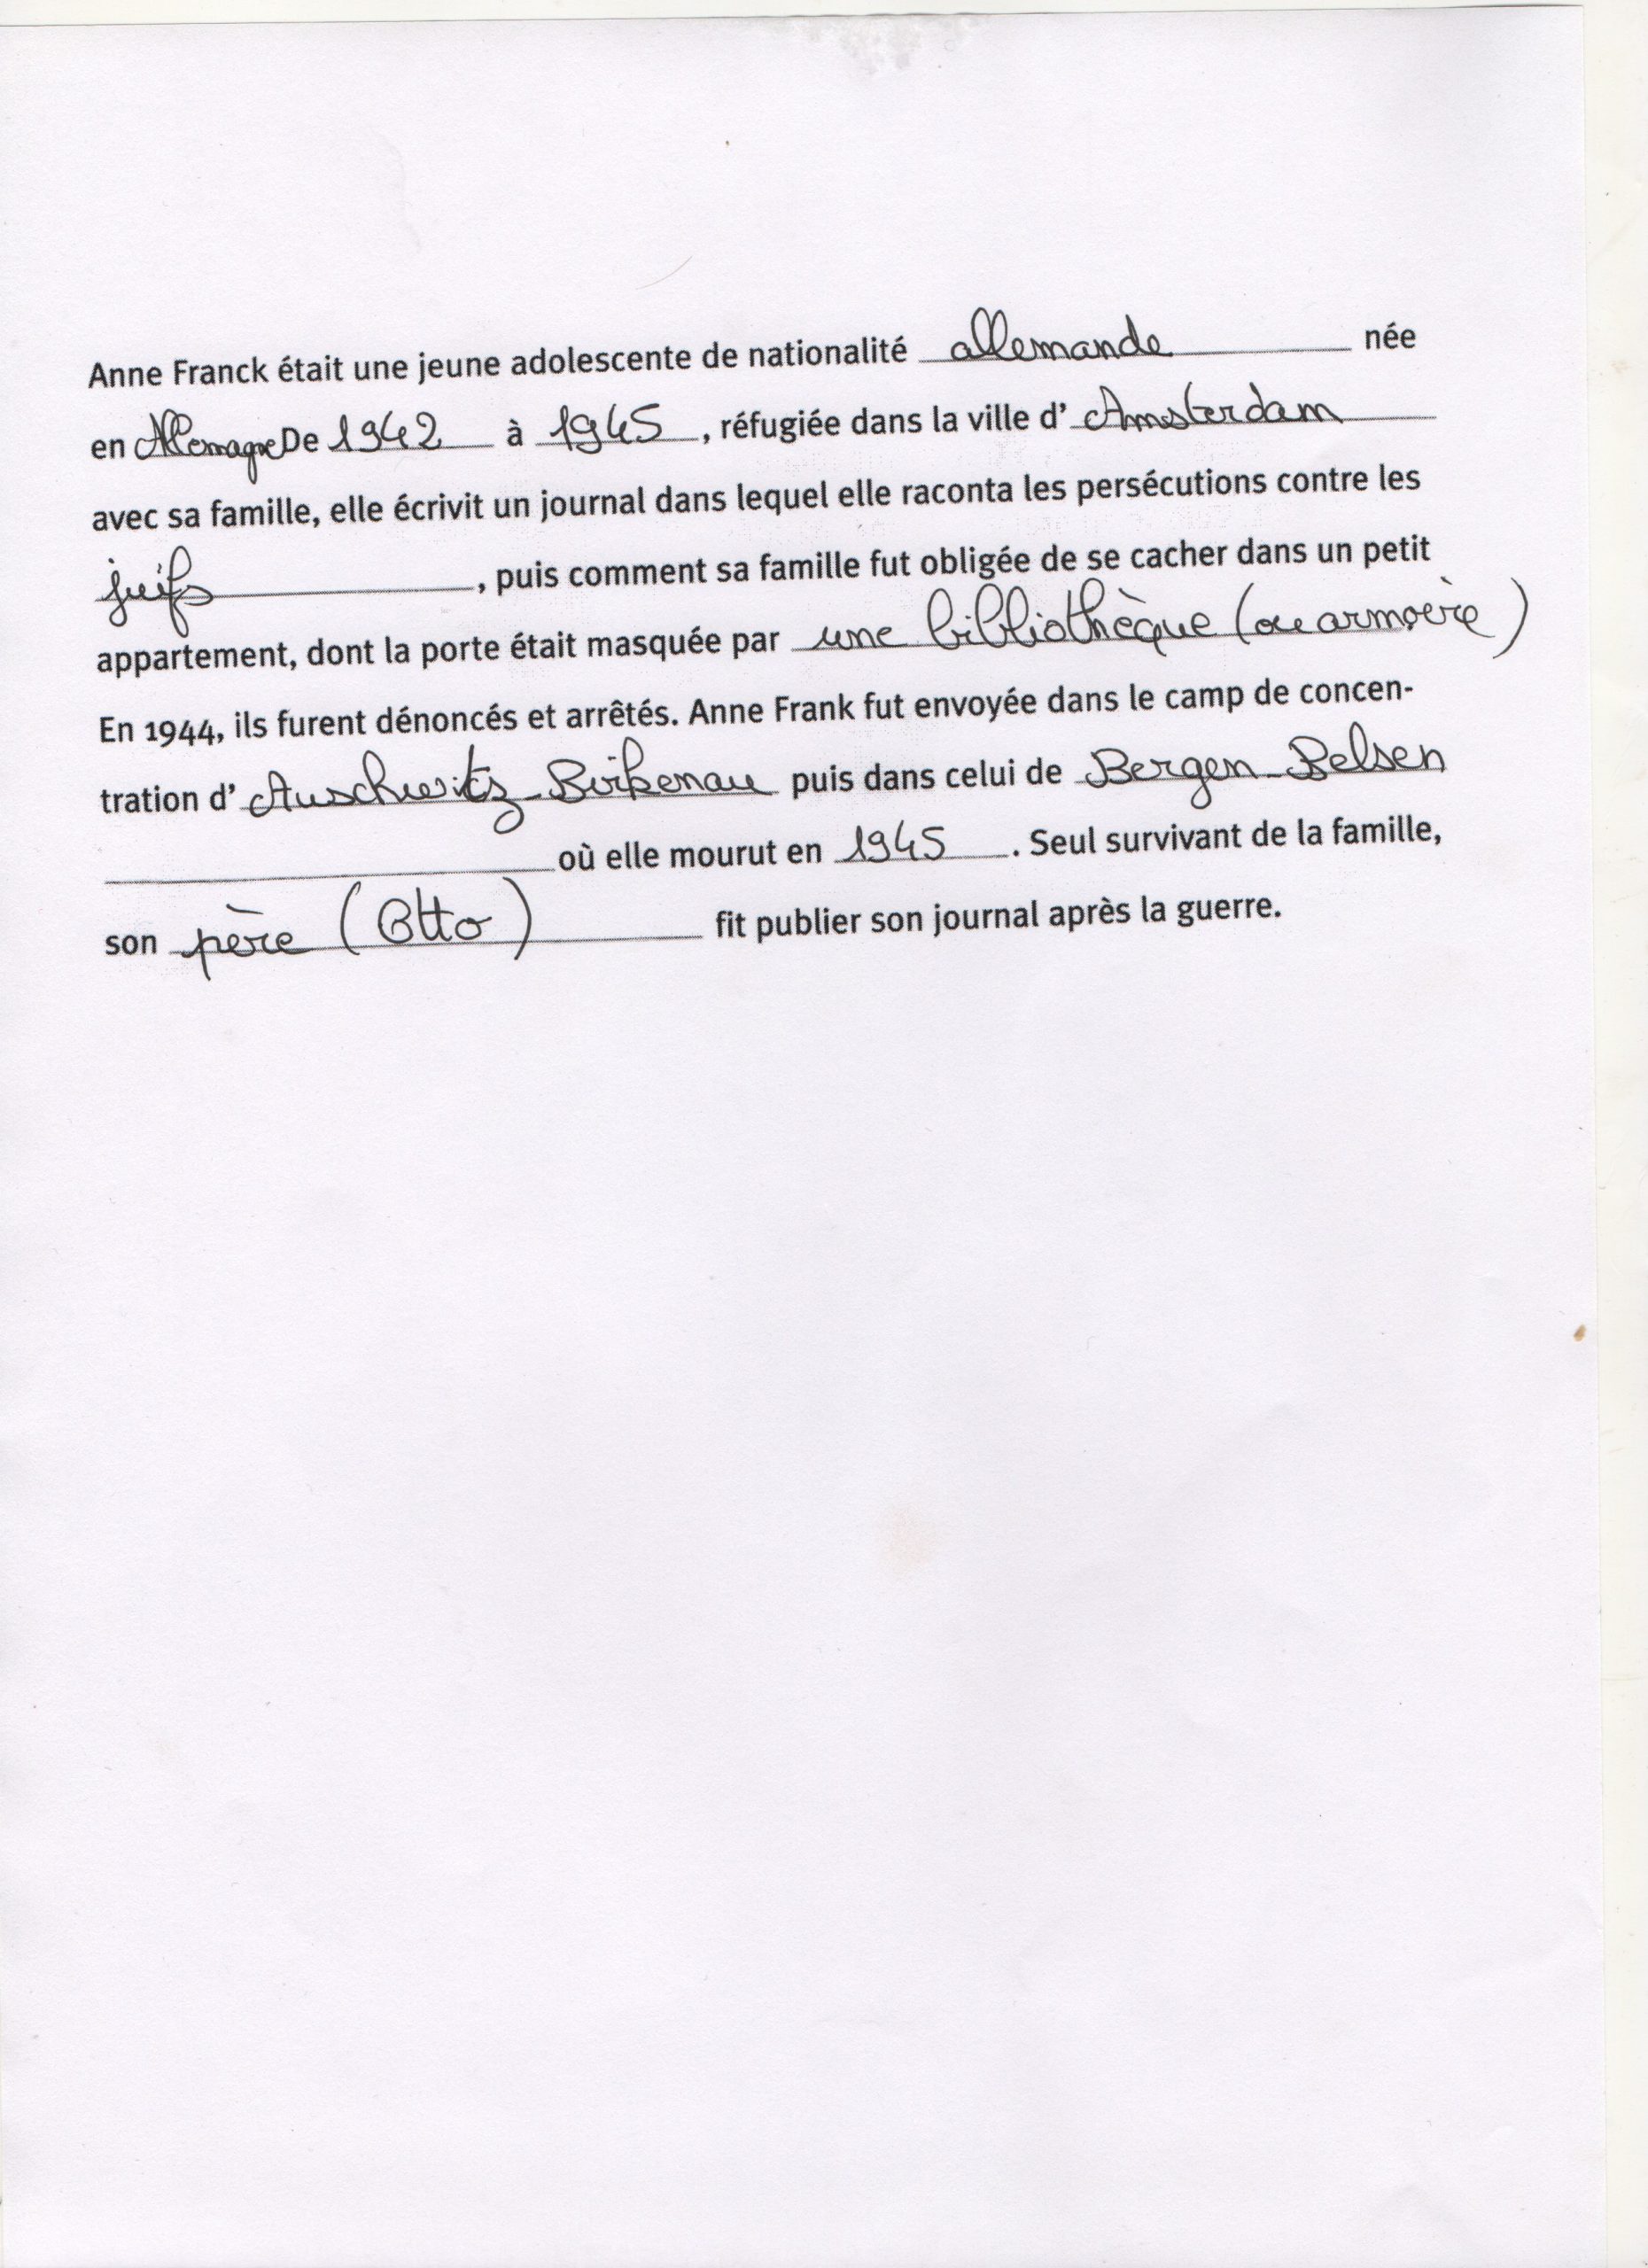 Anne Franck était une jeune adolescente de nationalité allemande née
en Allemagne De 1942 à 1945, réfugiée dans la ville d' Amsterdam
avec sa famille, elle écrivit un journal dans lequel elle raconta les persécutions contre les
juifs, puis comment sa famille fut obligée de se cacher dans un petit
appartement, dont la porte était masquée par une bibliothèque (ou armoire)
En 1944, ils furent dénoncés et arrêtés. Anne Frank fut envoyée dans le camp de concen-
tration d' Auschwitz-Birkenau puis dans celui de Bergen-Belsen
où elle mourut en 1945. Seul survivant de la famille,
son père (Otto) fit publier son journal après la guerre.